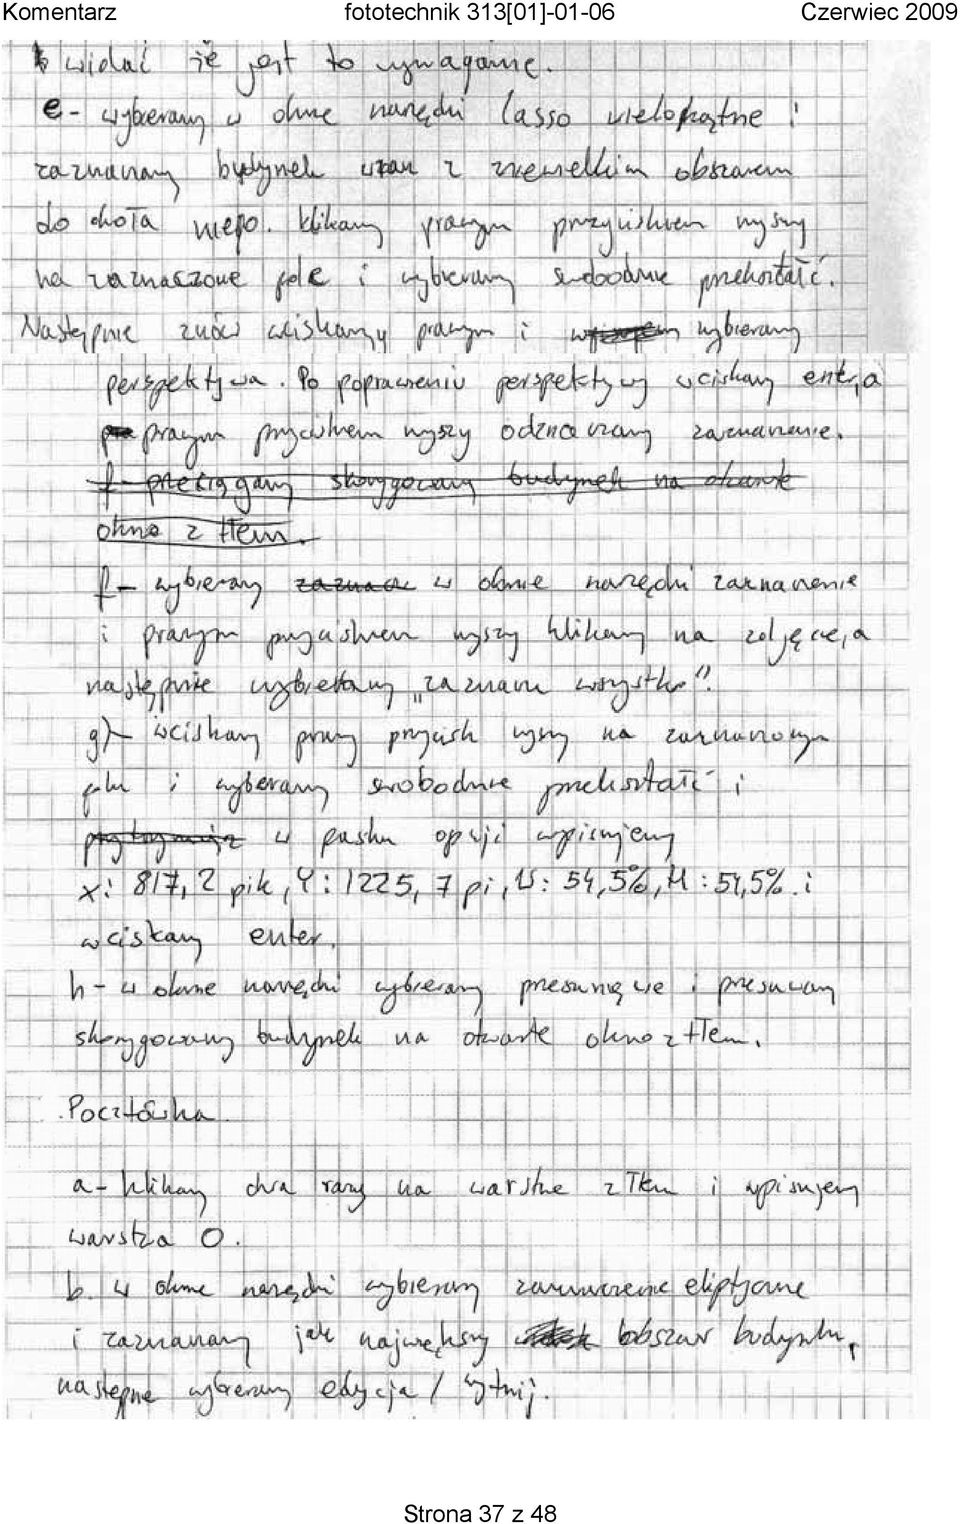 Komentarz fototechnik 313[01]-01-06 Czerwiec 2009
widać że jest to wymagane.
e - wybieramy w oknie narzędzi lasso wielokątne i
zaznaczamy budynek wraz z niewielkim obszarem
do okoła niego. klikamy prawym przyciskiem myszy
na zaznaczone pole i wybieramy swobodnie przekształć.
Następnie znów wciskamy prawym i wybieramy
perspektywa. Po poprawieniu perspektywy wciskamy enter, a
prawym przyciskiem myszy odznaczamy zaznaczenie.
f - przeciągamy skorygowany budynek na otwarte
okno z tłem.
f - wybieramy w oknie narzędzi zaznaczenie
i prawym przyciskiem myszy klikamy na zdjęcie, a
następnie wybieramy „zaznacz wszystko".
g) - wciskamy prawy przycisk myszy na zaznaczonym
polu i wybieramy swobodnie przekształć i
w pasku opcji wpisujemy
X: 817,2 pik, Y: 1225,7 pi, W: 54,5%, H: 54,5% i
wciskamy enter.
h - w oknie narzędzi wybieramy przesunięcie i przesuwamy
skorygowany budynek na otwarte okno z tłem.
Pocztówka
a - klikamy dwa razy na warstwę z Tłem i wpisujemy
warstwa 0.
b. w oknie narzędzi wybieramy zaznaczenie eliptyczne
i zaznaczamy jak największy obszar budynku,
następnie wybieramy edycja / wytnij.
Strona 37 z 48